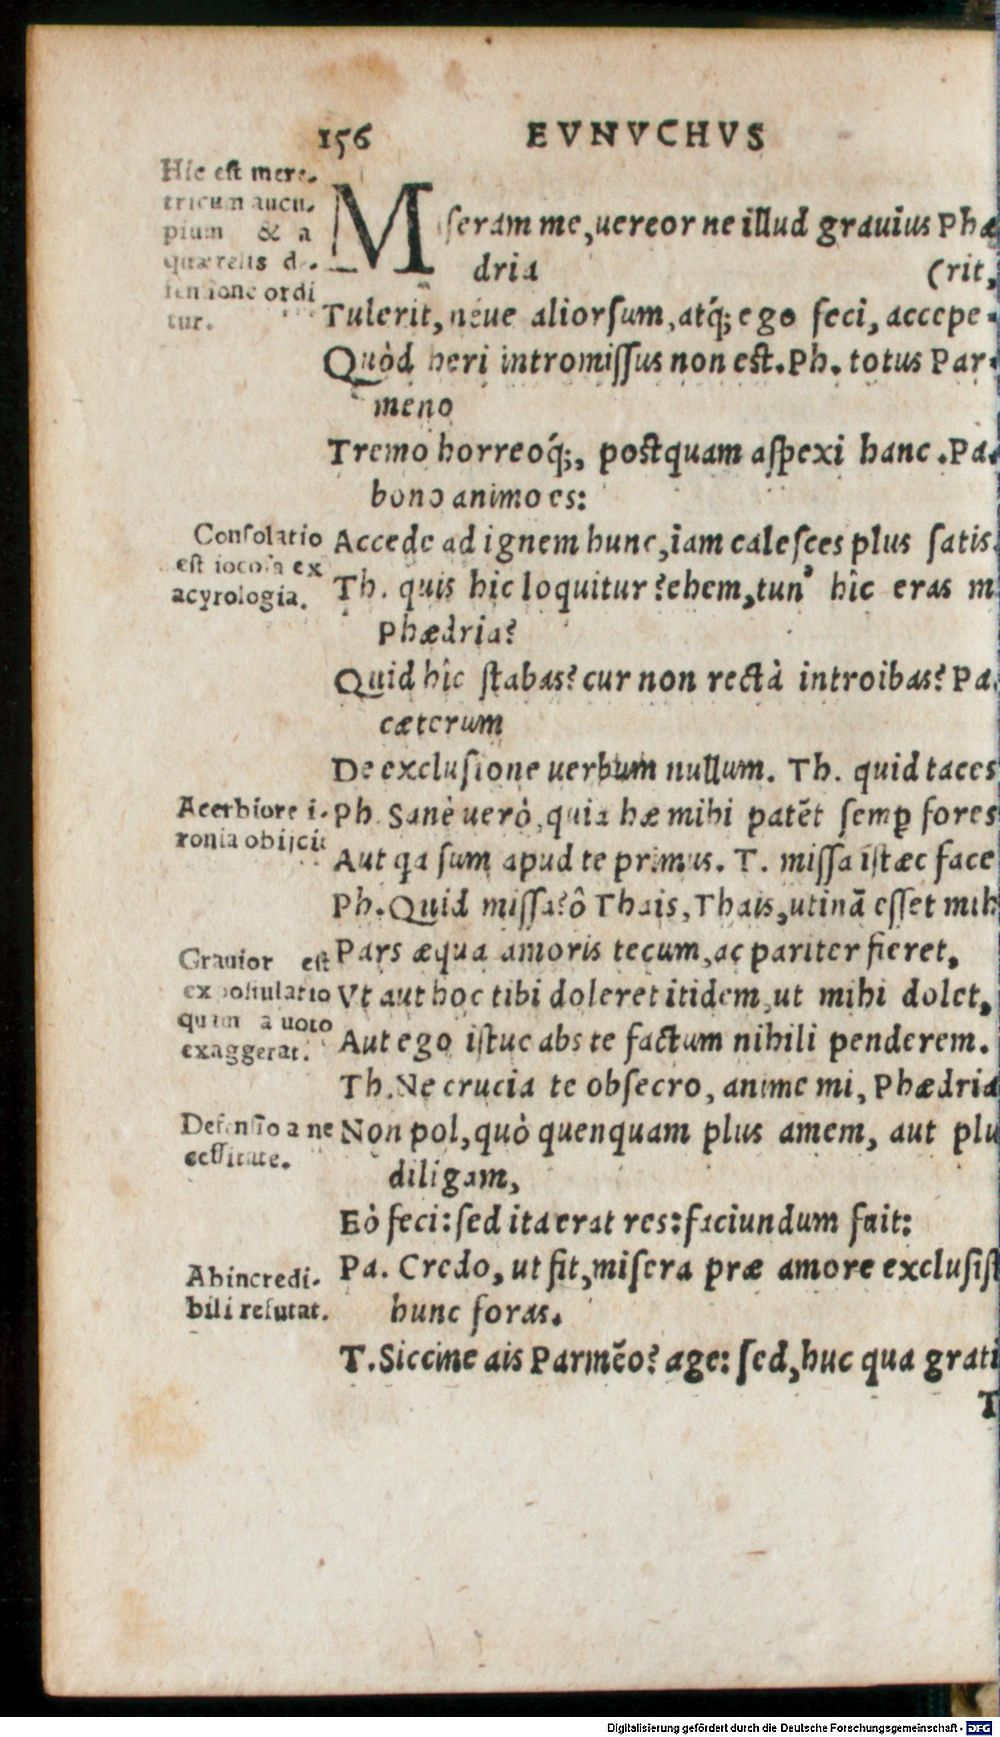 156 EVNVCHVS
Hic est mere-
tricum aucu-
pium & a
querelis de-
fensione ordi
tur.
Mſeram me, uereor ne illud grauius Phæ
dria (rit,
Tulerit, néue aliorſum, atq́; ego feci, accepe-
Quòd heri intromiſſus non est. Ph. totus Par-
meno
Tremo horreoq́;, postquam aſpexi hanc. Pa.
bono animo es:
Consolatio
est iocosa ex
acyrologia.
Accede ad ignem hunc, iam caleſces plus ſatis.
Th. quis hic loquitur? ehem, tun' hîc eras m
Phædria?
Quid hîc ſtabas? cur non rectà introibas? Pa.
cæterum
De excluſione uerbum nullum. Th. quid taces
Acerbiore i-
ronia obijcit
Ph. Sanè uerò, quia hæ mihi patẽt ſemꝑ fores
Aut qa ſum apud te primus. T. miſſa iſtæc face
Ph. Quid miſſa? ô Thais, Thais, utinã eſſet mih
Grauior est
expostulatio
quam a uoto
exaggerat.
Pars æqua amoris tecum, ac pariter fieret,
Vt aut hoc tibi doleret itidem, ut mihi dolet,
Aut ego iſtuc abs te factum nihili penderem.
Th. Ne crucia te obſecro, anime mi, Phædria
Defensio a ne
cessitate.
Non pol, quò quenquam plus amem, aut plu
diligam,
Eò feci: ſed ita erat res: faciundum fuit:
Ab incredi-
bili refutat.
Pa. Credo, ut fit, miſera præ amore excluſiſt
hunc foras.
T. Siccine ais Parmẽo? age: ſed, huc qua grati
T
Digitalisierung gefördert durch die Deutsche Forschungsgemeinschaft - DFG